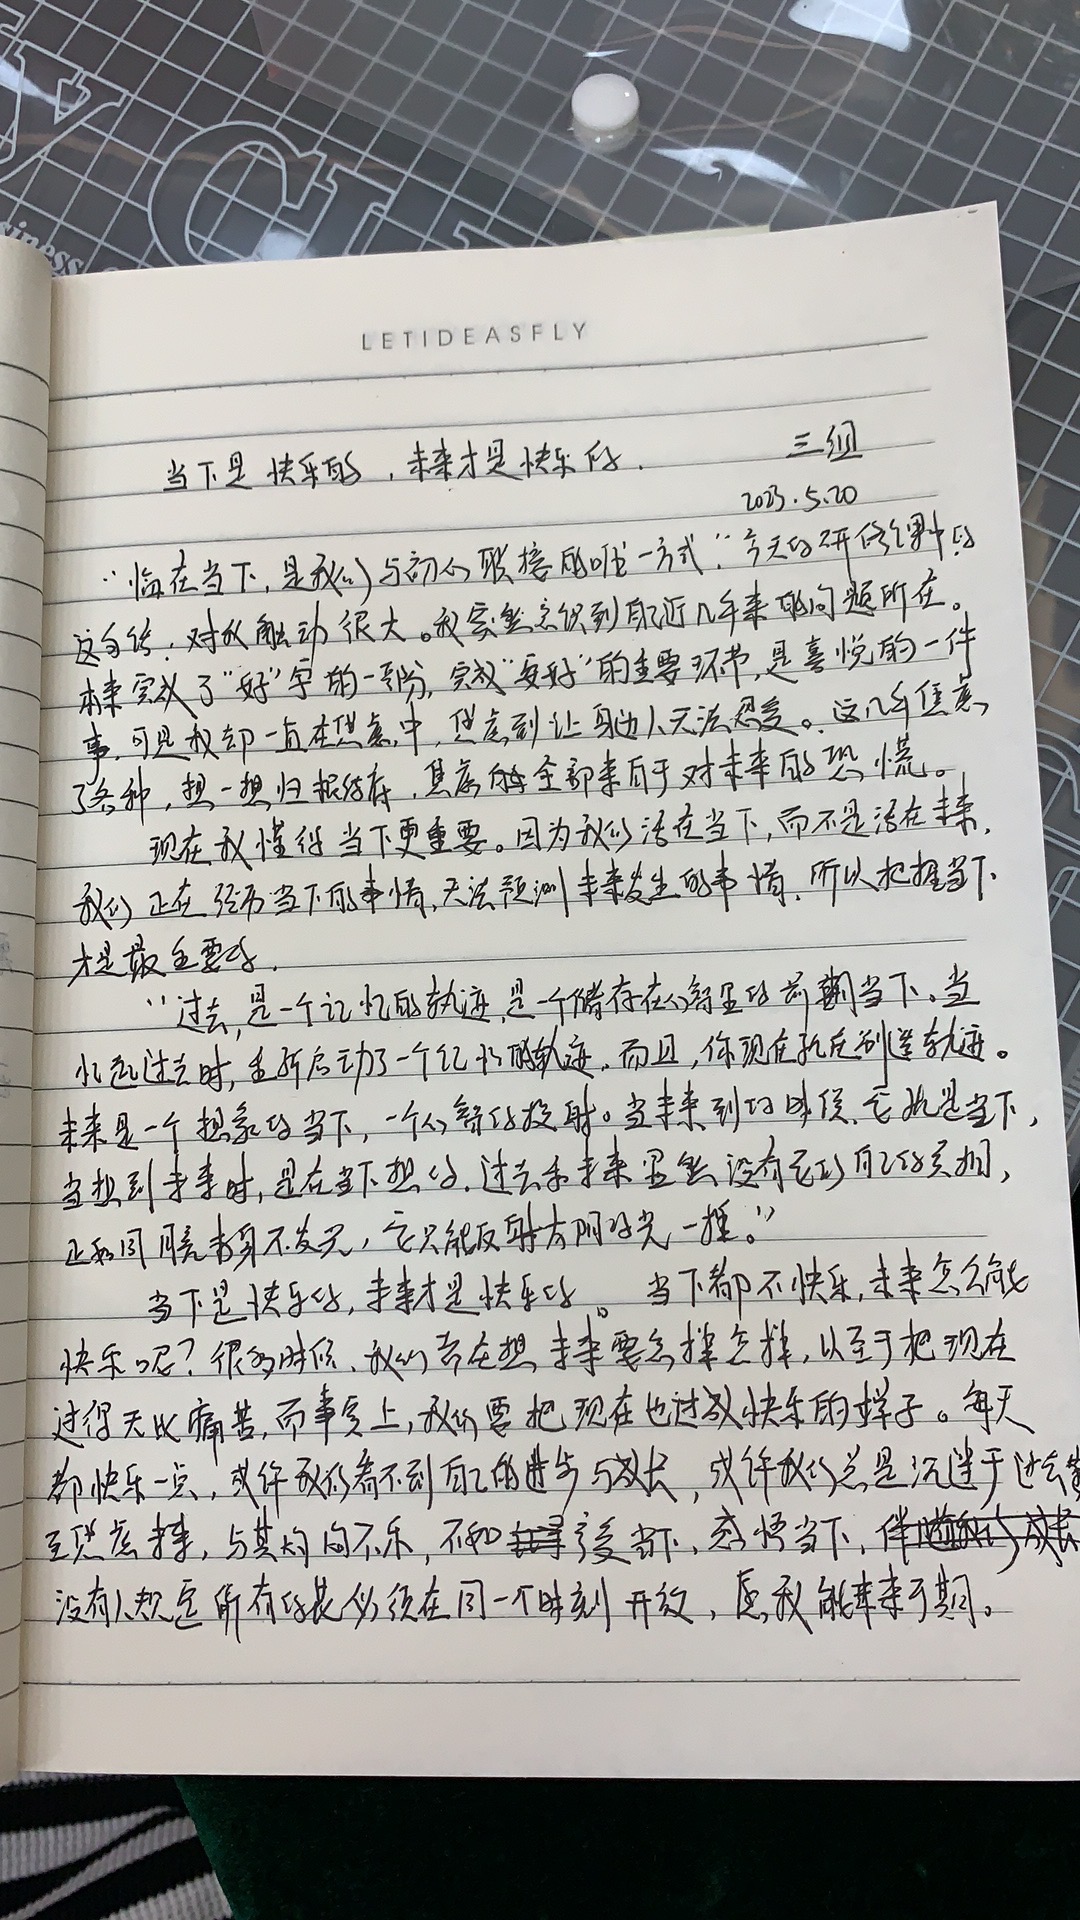 LETIDEASFLY
当下是快乐的，未来才是快乐的．
三组
2023.5.20
“临在当下，是我们与初心联接的唯一方式”今天的研修课中的
这句话，对我触动很大。我突然意识到自己近几年来的问题所在。
本来完成了“好”字的一部分，完成“要好”的重要环节，是喜悦的一件
事，可是我却一直在焦虑中，焦虑到让身边人无法忍受。这几年焦虑
了各种，想一想归根结底，焦虑的全部来自于对未来的恐慌。
现在我懂得当下更重要。因为我们活在当下，而不是活在未来，
我们正在经历当下的事情，无法预测未来发生的事情，所以把握当下
才是最重要的．
“过去，是一个记忆的轨迹，是一个储存在心智里的前期当下。当
忆起过去时，重新启动了一个记忆的轨迹，而且，你现在就在创造轨迹。
未来是一个想象的当下，一个心智的投射。当未来到的时候，它就是当下，
当想到未来时，是在当下想的．过去和未来显然没有它的自己的实相，
正如同月亮本身不发光，它只能反射太阳的光一样。”
当下是快乐的，未来才是快乐的。当下都不快乐，未来怎么能
快乐呢？很多时候，我们总在想未来要怎样怎样，以至于把现在
过得无比痛苦，而事实上，我们要把现在也过成快乐的样子。每天
都快乐一点，或许我们看不到自己的进步与成长，或许我们总是沉迷于过去
至焦虑未来，与其闷闷不乐，不如享受当下，感悟当下，伴
没有人规定所有的花必须在同一个时刻开放，愿我能未来可期。